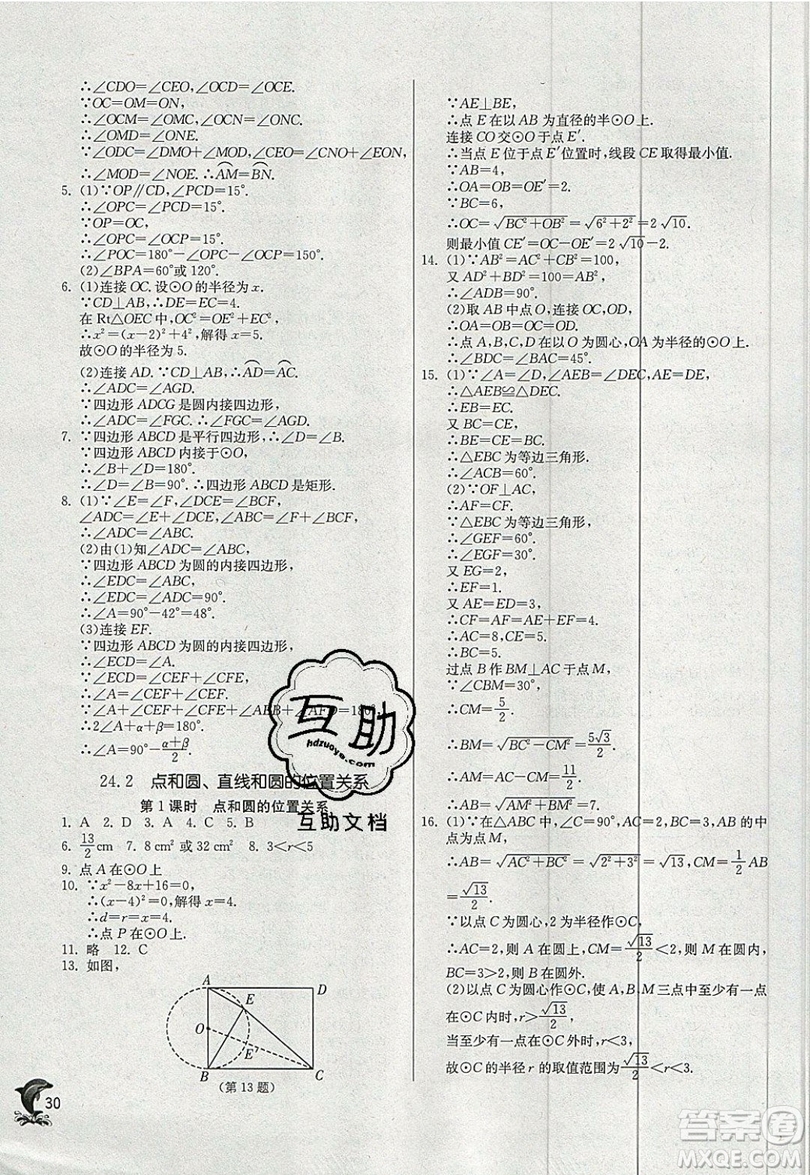 ∴∠CDO=∠CEO,∠OCD=∠OCE.
∵OC=OM=ON,
∴∠OCM=∠OMC,∠OCN=∠ONC.
∴∠OMD=∠ONE.
∵∠ODC=∠DMO+∠MOD,∠CEO=∠CNO+∠EON,
∴∠MOD=∠NOE. ∴A͡M=B͡N.
5. (1)∵OP∥CD,∠PCD=15°.
∴∠OPC=∠PCD=15°.
∵OP=OC,
∴∠OPC=∠OCP=15°.
∴∠POC=180°-∠OPC-∠OCP=150°.
(2)∠BPA=60°或120°.
6. (1)连接OC. 设⊙O的半径为x.
∵CD⊥AB,∴DE=EC=4.
在Rt△OEC中,OC²=OE²+EC²,
∴x²=(x-2)²+4²,解得x=5.
故⊙O的半径为5.
(2)连接AD. ∵CD⊥AB,∴A͡D=A͡C.
∴∠ADC=∠AGD.
∵四边形ADCG是圆内接四边形,
∴∠ADC=∠FGC. ∴∠FGC=∠AGD.
7. ∵四边形ABCD是平行四边形,∴∠D=∠B.
∵四边形ABCD内接于⊙O,
∴∠B+∠D=180°.
∴∠D=∠B=90°. ∴四边形ABCD是矩形.
8. (1)∵∠E=∠F,∠DCE=∠BCF,
∠ADC=∠E+∠DCE,∠ABC=∠F+∠BCF,
∴∠ADC=∠ABC.
(2)由(1)知∠ADC=∠ABC,
∵四边形ABCD为圆的内接四边形,
∴∠EDC=∠ABC.
∴∠EDC=∠ADC=90°.
∴∠A=90°-42°=48°.
(3)连接EF.
∵四边形ABCD为圆的内接四边形,
∴∠ECD=∠A.
∵∠ECD=∠CEF+∠CFE,
∴∠A=∠CEF+∠CFE.
∵∠A+∠CEF+∠CFE+∠AEB+∠AFD=180°,
∴2∠A+α+β=180°.
∴∠A=90°-(α+β)/2.
24.2 点和圆、直线和圆的位置关系
第1课时 点和圆的位置关系
1. A 2. D 3. A 4. C 5. B
6. 13/2 cm 7. 8 cm²或32 cm² 8. 3<r<5
9. 点A在⊙O上
10. ∵x²-8x+16=0,
∴(x-4)²=0,解得x=4.
∴d=r=4.
∴点P在⊙O上.
11. 略 12. C
13. 如图,
A D
E
O
E′
B C
(第13题)
30
∵AE⊥BE,
∴点E在以AB为直径的半⊙O上.
连接CO交⊙O于点E′.
∴当点E位于点E′位置时,线段CE取得最小值.
∵AB=4,
∴OA=OB=OE′=2.
∵BC=6,
∴OC=√(BC²+OB²)=√(6²+2²)=2√10.
则最小值CE′=OC-OE′=2√10-2.
14. (1)∵AB²=AC²+CB²=100,
又AD²+BD²=100,
∴∠ADB=90°.
(2)取AB中点O,连接OC,OD,
∴OA=OB=OC=OD.
∴点A,B,C,D在以O为圆心,OA为半径的圆上.
∴∠BDC=∠BAC=45°.
15. (1)∵∠A=∠D,∠AEB=∠DEC,AE=DE,
∴△AEB≌△DEC.
∴EB=EC.
又BC=CE,
∴BE=CE=BC.
∴△EBC为等边三角形.
∴∠ACB=60°.
(2)∵OF⊥AC,
∴AF=CF.
∵△EBC为等边三角形,
∴∠GEF=60°.
∴∠EGF=30°.
又EG=2,
∴EF=1.
又AE=ED=3,
∴CF=AF=AE+EF=4.
∴AC=8,EC=5.
∴BC=5.
过点B作BM⊥AC于点M,
∵∠CBM=30°,
∴CM=5/2.
∴BM=√(BC²-CM²)=5√3/2.
∴AM=AC-CM=11/2.
∴AB=√(AM²+BM²)=7.
16. (1)∵在△ABC中,∠C=90°,AC=2,BC=3,AB的中点为点M,
∴AB=√(AC²+BC²)=√(2²+3²)=√13,CM=1/2 AB=
√13/2.
∵以点C为圆心,2为半径作⊙C,
∴AC=2,则A在圆上,CM=√13/2<2,则M在圆内,
BC=3>2,则B在圆外.
(2)以点C为圆心作⊙C,使A,B,M三点中至少有一点
在⊙C内时,r>√13/2,
当至少有一点在⊙C外时,r<3,
故⊙C的半径r的取值范围为√13/2<r<3.
互助
hdzuoye.com
互助文档
答案圈
MXQE.COM